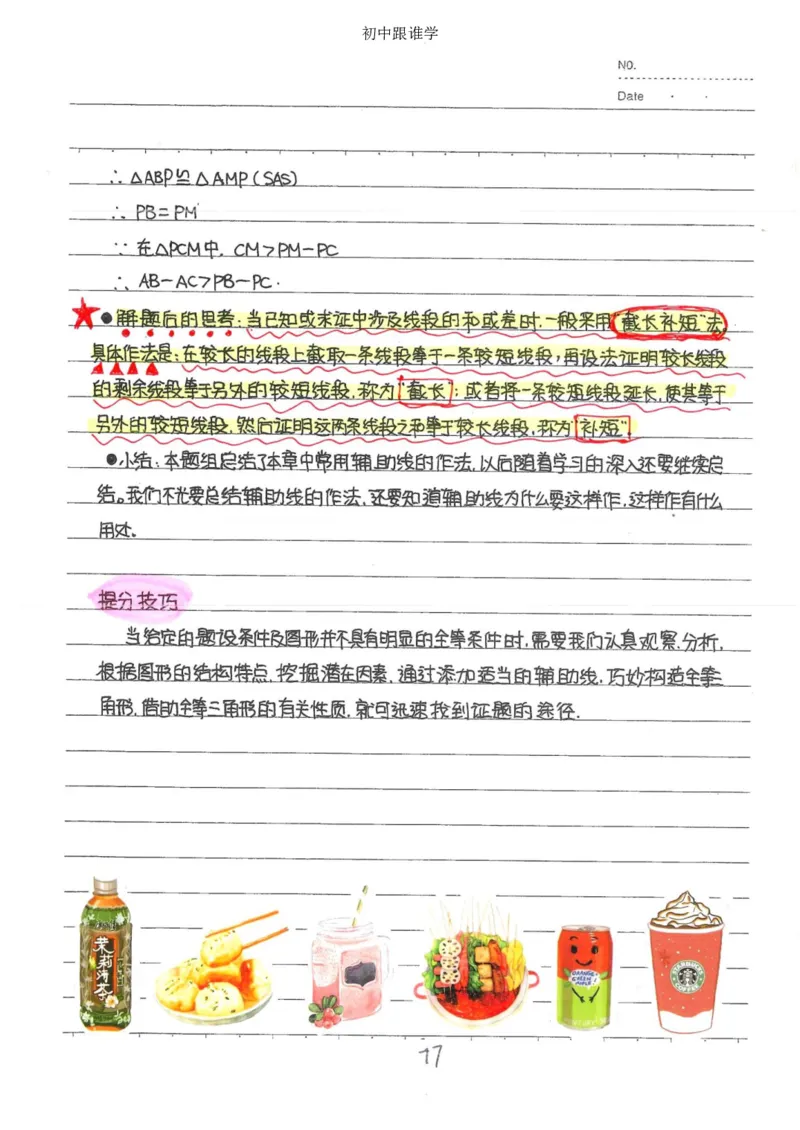 初中跟谁学
NO.
Date
∴ △ABP≌△AMP(SAS)
∴ PB=PM
∵ 在△PCM中, CM>PM-PC
∴ AB-AC>PB-PC.
●解题后的思考:当已知或求证中涉及线段的和或差时,一般采用"截长补短"法,
具体作法是:在较长的线段上截取一条线段等于一条较短线段,再设法证明较长线段
的剩余线段等于另外的较短线段,称为"截长";或者将一条较短线段延长,使其等于
另外的较短线段,然后证明这两条线段之和等于较长线段,称为"补短".
●小结:本题组总结了本章中常用辅助线的作法,以后随着学习的深入还要继续总
结。我们不光要总结辅助线的作法,还要知道辅助线为什么要这样作,这样作有什么
用处.
提分技巧
当给定的题设条件及图形并不具有明显的全等条件时,需要我们认真观察、分析,
根据图形的结构特点,挖掘潜在因素,通过添加适当的辅助线,巧妙构造全等三
角形,借助全等三角形的有关性质,就可迅速找到证题的途径.
茉莉清茶
STARBUCKS
COFFEE
17